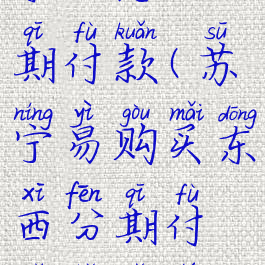 qī fù kuǎn sū
期付款(苏
níng yì gòu mǎi dōng
宁易购买东
xī fēn qī fù
西分期付